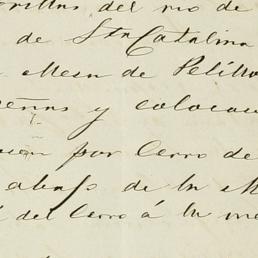 orillas del rio de
de Sta Catalina
Mesa de Pelillo
peñas y colocar
por Cerro de
abajo de la M
del Cerro á la me